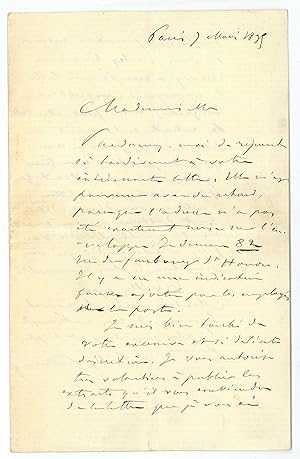 Paris 7 Mai 1875
Mademoiselle
Pardonnez-moi de répondre
si tardivement à votre
intéressante lettre. Elle m'est
parvenue avec du retard,
parceque l'adresse n'a pas
été exactement mise sur l'en-
veloppe. Je demeure 82
rue du faubourg St Honoré.
Il y a eu une indication
fausse ajoutée par les employés
de la poste.
Je suis bien touché de
votre excessive et si délicate
discrétion. Je vous autorise
très volontiers à publier les
extraits qu'il vous conviendra
de la lettre que je vous ai